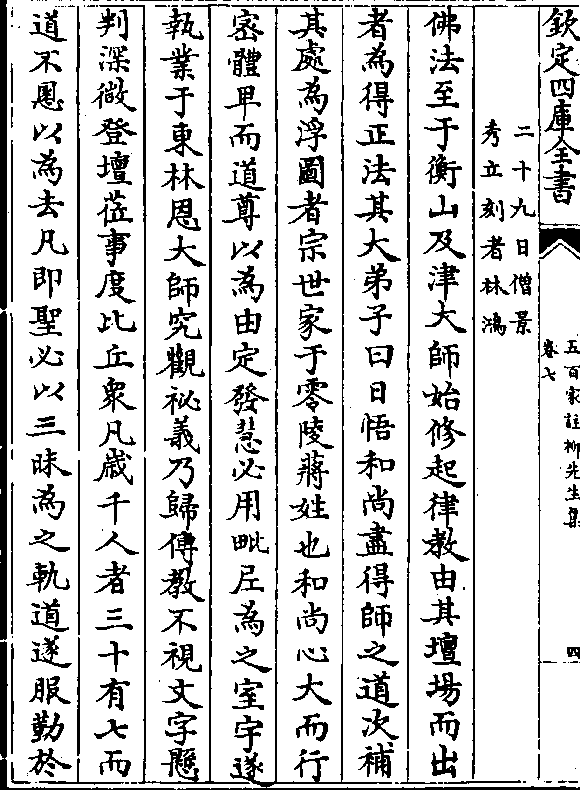 欽定四庫全書
五百家註柳先生集
卷七
四
二十九日僧景
秀立刻者林鴻
佛法至于衡山及津大師始修起律教由其壇場而出
者為得正法其大弟子曰日悟和尚盡得師之道次補
其處為浮圖者宗世家于零陵蔣姓也和尚心大而行
密體卑而道尊以為由定發慧必用毗尼為之室宇遂
執業于東林恩大師究觀祕義乃歸傳教不視文字懸
判深微登壇蒞事度比丘衆凡歲千人者三十有七而
道不慁以為去凡即聖必以三昧為之軌道遂服勤於